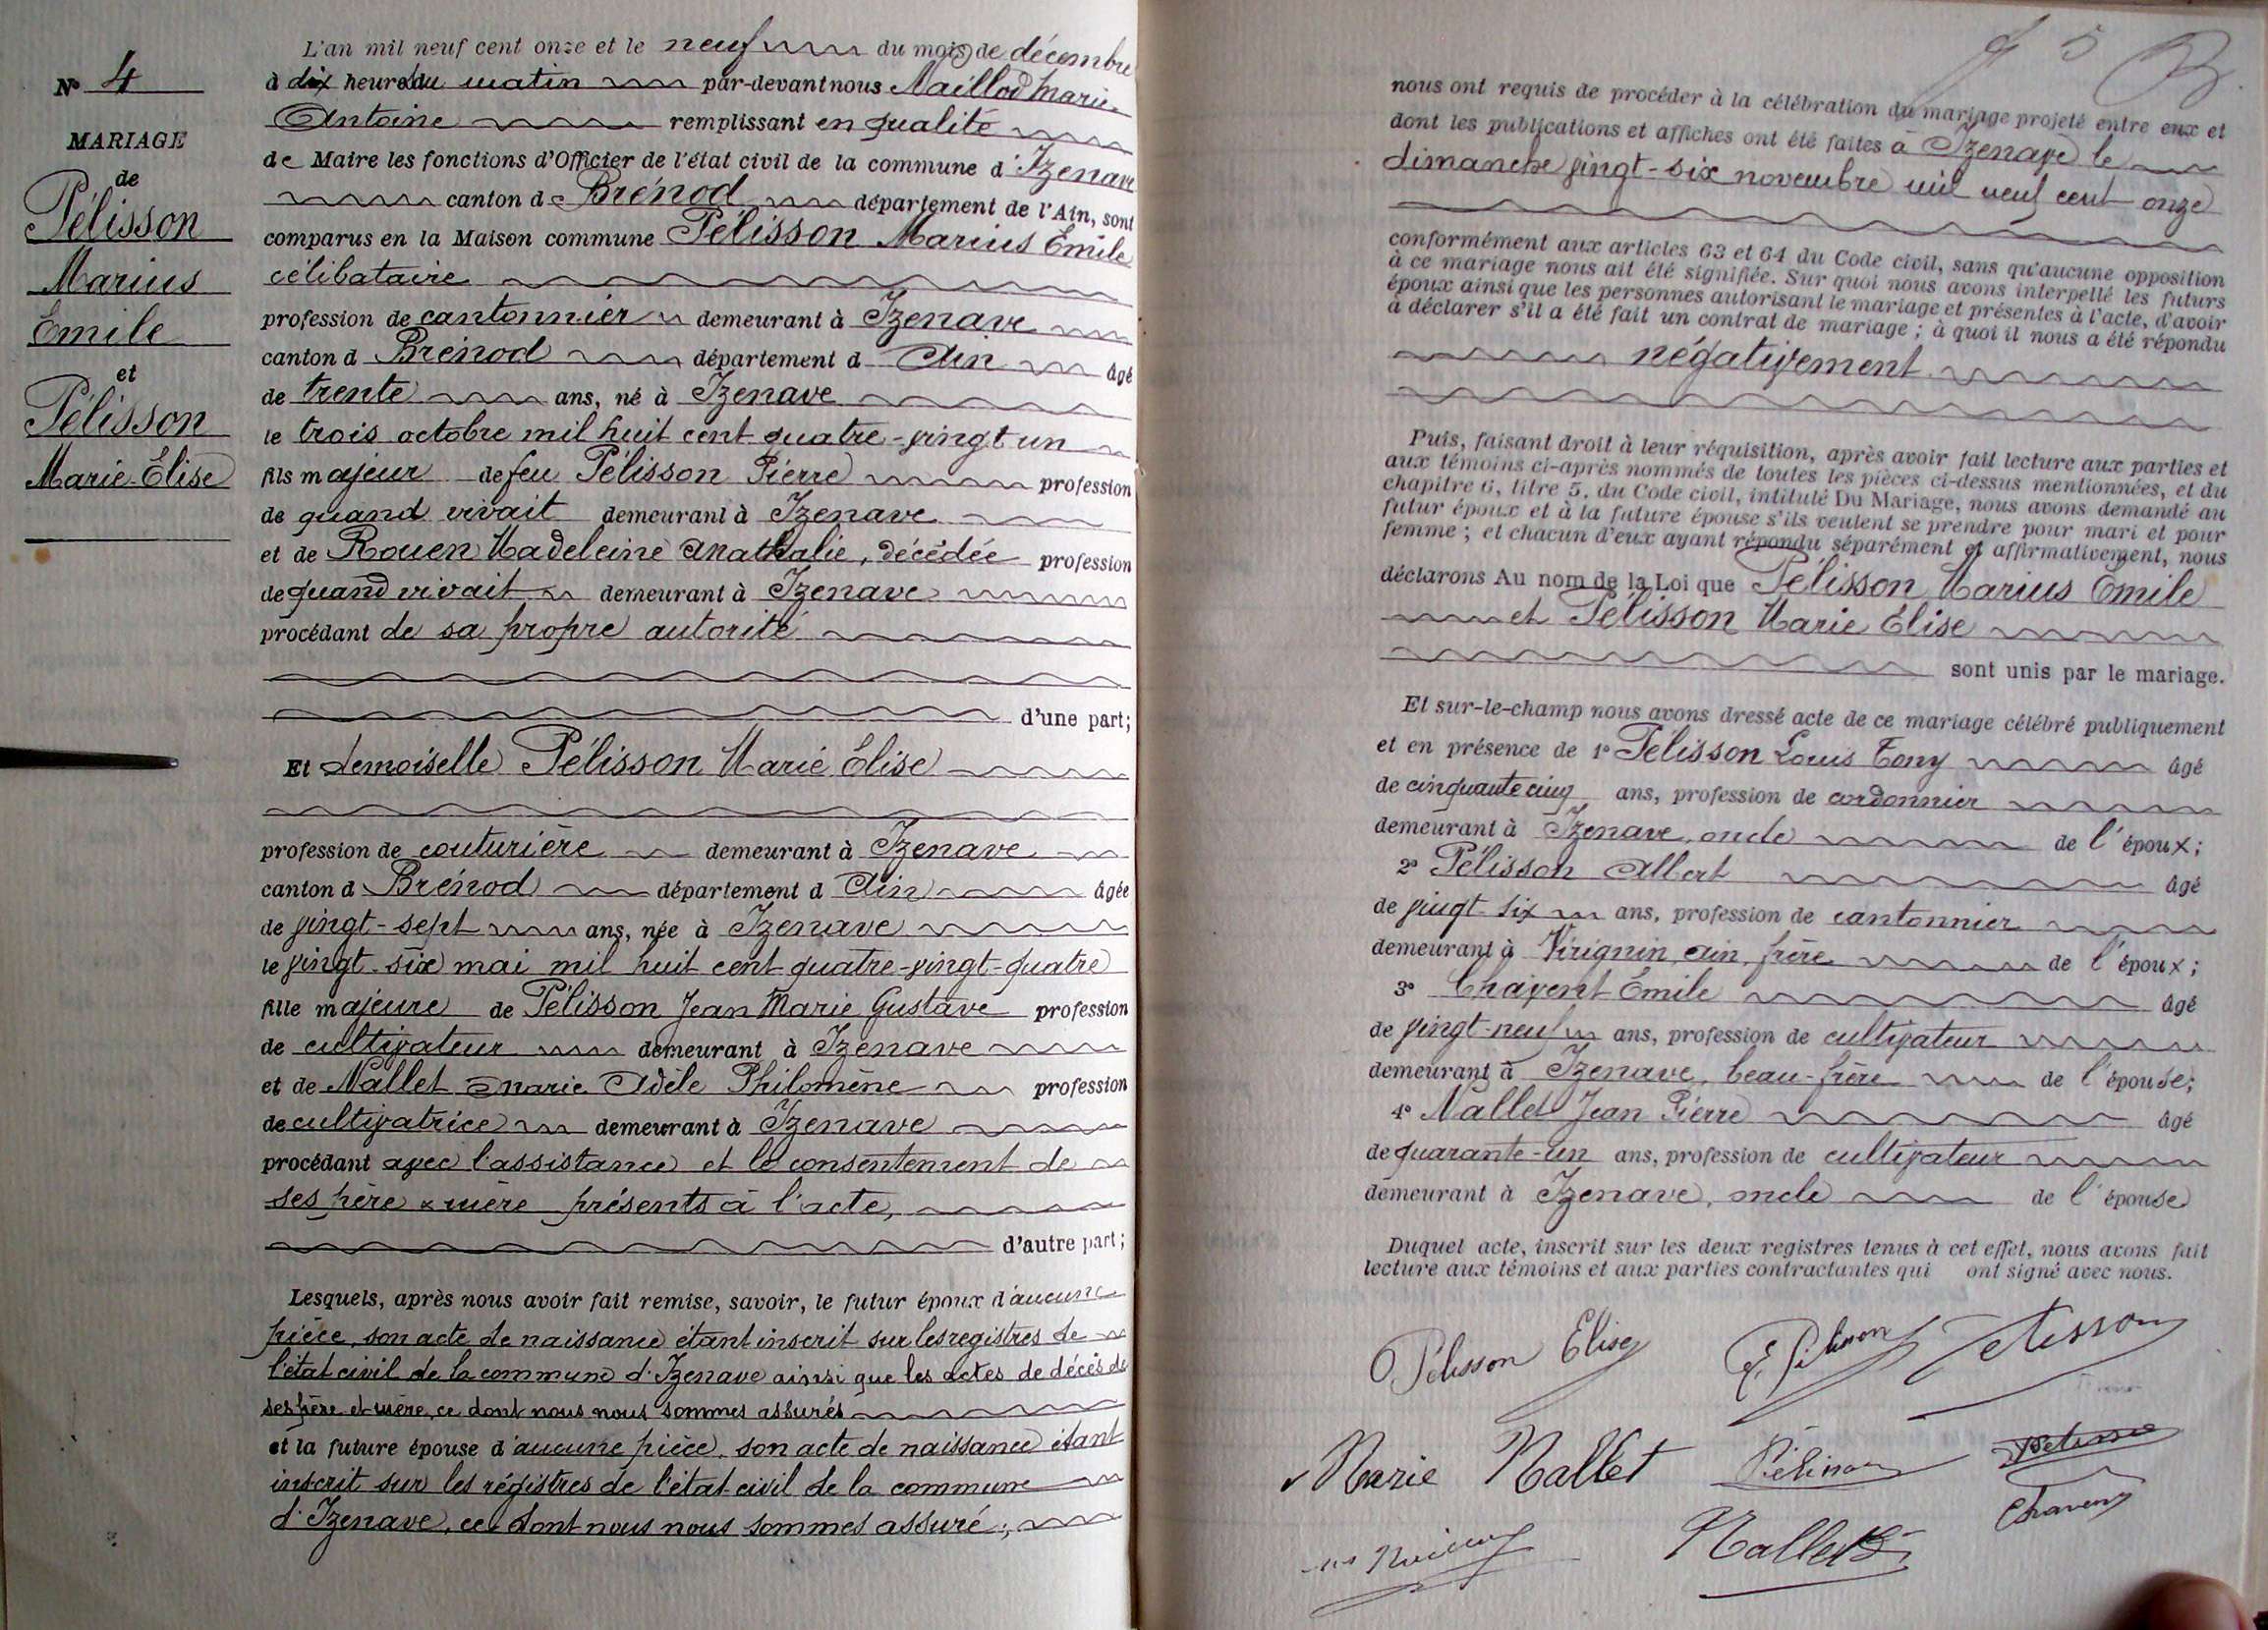 N° 4
MARIAGE
de
Pélisson
Marius
Emile
et
Pélisson
Marie-Elise
L'an mil neuf cent onze et le neuf du mois de décembre
à dix heures du matin par-devant nous Naillod Marie
Antoine remplissant en qualité
de Maire les fonctions d'Officier de l'état civil de la commune d'Izenave
canton de Brénod département de l'Ain, sont
comparus en la Maison commune Pélisson Marius Emile
célibataire
profession de cantonnier demeurant à Izenave
canton d Brénod département d Ain âgé
de trente ans, né à Izenave
le trois octobre mil huit cent quatre-vingt un
fils majeur de feu Pélisson Pierre profession
de quand vivait demeurant à Izenave
et de Rouen Madeleine Anathalie, décédée profession
de quand vivait demeurant à Izenave
procédant de sa propre autorité
d'une part;
Et demoiselle Pélisson Marie Élise
profession de couturière demeurant à Izenave
canton d Brénod département d Ain âgée
de vingt-sept ans, née à Izenave
le vingt-six mai mil huit cent quatre-vingt-quatre
fille majeure de Pélisson Jean Marie Gustave profession
de cultivateur demeurant à Izenave
et de Nallet Marie Adèle Philomène profession
de cultivatrice demeurant à Izenave
procédant avec l'assistance et le consentement de
ses père & mère présents à l'acte,
d'autre part;
Lesquels, après nous avoir fait remise, savoir, le futur époux d'aucune
pièce, son acte de naissance étant inscrit sur les registres de
l'état civil de la commune d'Izenave ainsi que les actes de décès de
ses père et mère, ce dont nous nous sommes assurés
et la future épouse d'aucune pièce, son acte de naissance étant
inscrit sur les régistres de l'état-civil de la commune
d'Izenave, ce dont nous nous sommes assuré;
nous ont requis de procéder à la célébration du mariage projeté entre eux et
dont les publications et affiches ont été faites à Izenave le
dimanche vingt-six novembre mil neuf cent onze
conformément aux articles 63 et 64 du Code civil, sans qu'aucune opposition
à ce mariage nous ait été signifiée. Sur quoi nous avons interpellé les futurs
époux ainsi que les personnes autorisant le mariage et présentes à l'acte, d'avoir
à déclarer s'il a été fait un contrat de mariage; à quoi il nous a été répondu
négativement
Puis, faisant droit à leur réquisition, après avoir fait lecture aux parties et
aux témoins ci-après nommés de toutes les pièces ci-dessus mentionnées, et du
chapitre 6, titre 5, du Code civil, intitulé Du Mariage, nous avons demandé au
futur époux et à la future épouse s'ils veulent se prendre pour mari et pour
femme; et chacun d'eux ayant répondu séparément et affirmativement, nous
déclarons Au nom de la Loi que Pélisson Marius Emile
et Pélisson Marie Élise
sont unis par le mariage.
Et sur-le-champ nous avons dressé acte de ce mariage célébré publiquement
et en présence de 1° Pélisson Louis Tony âgé
de cinquante cinq ans, profession de cordonnier
demeurant à Izenave, oncle de l'époux;
2° Pélisson Albert âgé
de vingt-six ans, profession de cantonnier
demeurant à Virignin, Ain, frère de l'époux;
3° Chavent Émile âgé
de vingt-neuf ans, profession de cultivateur
demeurant à Izenave, beau-frère de l'épouse;
4° Nallet Jean Pierre âgé
de quarante-un ans, profession de cultivateur
demeurant à Izenave, oncle de l'épouse
Duquel acte, inscrit sur les deux registres tenus à cet effet, nous avons fait
lecture aux témoins et aux parties contractantes qui ont signé avec nous.
Pélisson Elise E. Pélisson Pelisson
Marie Nallet Pélisson Pelisson
Chavent
Nallet